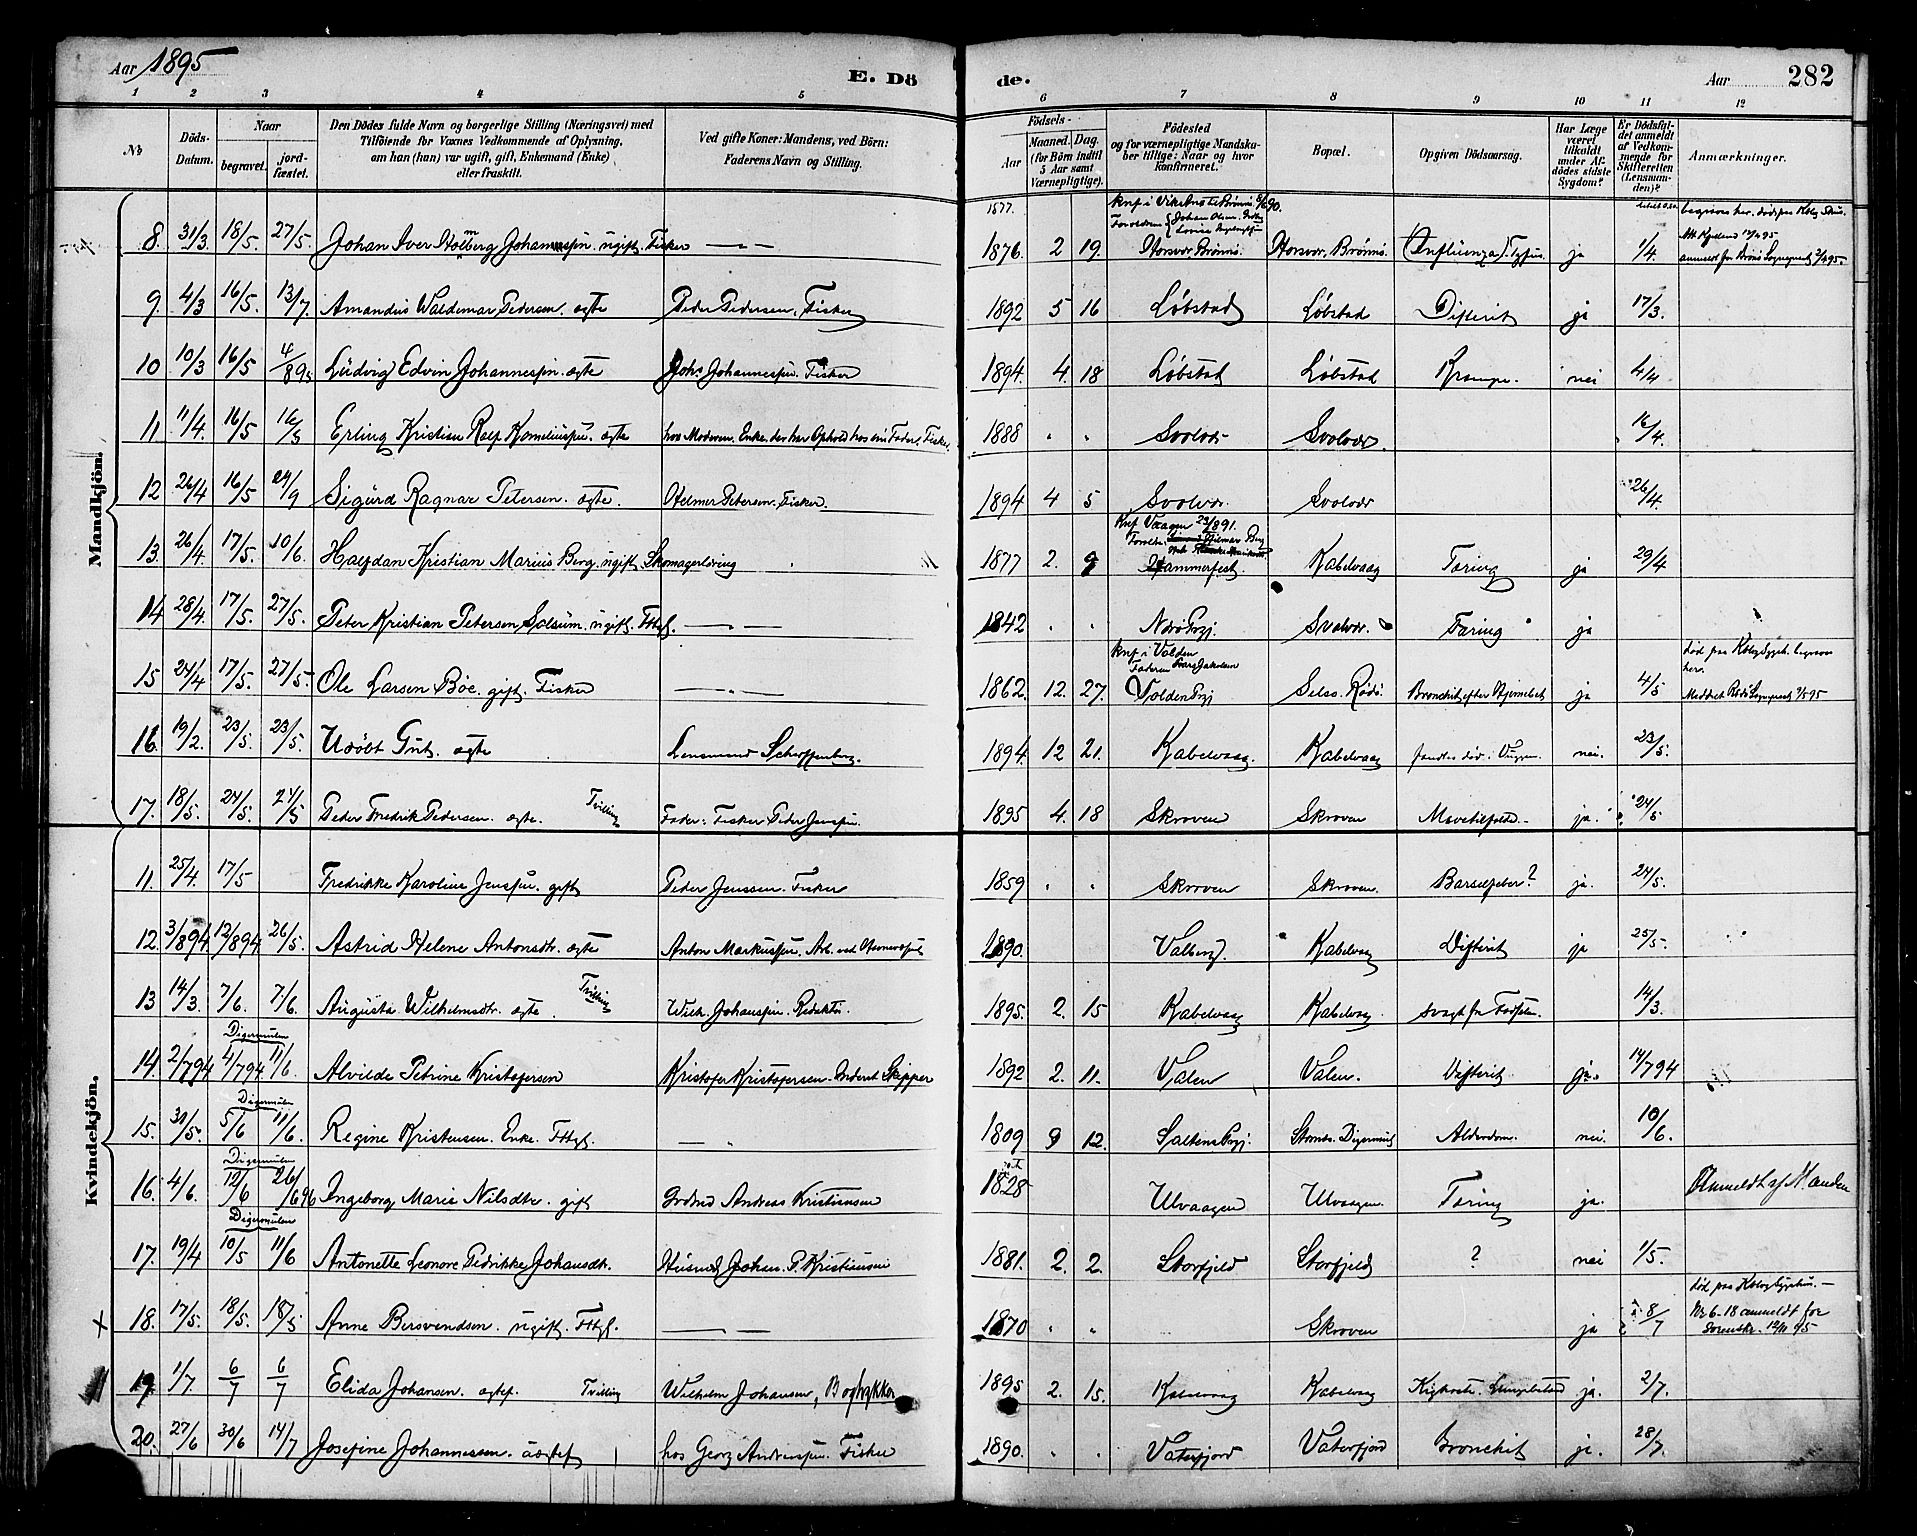 Aar 1895
E. Dö
de.
Aar 282
1 2 3 4 5 6 7 8 9 10 11 12
No
Döds-Datum.
Naar
begravet.
jord-fæstet.
Den Dödes fulde Navn og borgerlige Stilling (Næringsvei) med
Tilföiende for Voxnes Vedkommende af Oplysning,
om han (hun) var ugift, gift, Enkemand (Enke)
eller fraskilt.
Ved gifte Koner: Mandens, ved Börn:
Faderens Navn og Stilling.
Fødsels-
Aar
Maaned. Dag.
(for Börn indtil
5 Aar samt
Værnepligtige).
Födested
og for værnepligtige Mandska-
ber tillige: Naar og hvor
konfirmeret.
Bopæl.
Opgiven Dödsaarsag.
Har Læge
været
tilkaldt
under Af-
dödes sidste
Sygdom?
Er Dödsfal-
det anmeldt
af Vedkom-
mende for
Skifteretten
(Lensman-
den)?
Anmærkninger.
Mandkjön.
8. 31/3 18/5. 27/5. Johan Iver Holmberg Johannessen. ugift. Fisker — — 1876. 2 19. Horsvær. Brønnø. Horsvær. Brønnø. (Influenza). Tyfus. ja 1/4.
9. 4/3 16/5. 13/7. Amandus Waldemar Pedersen. ægte Peder Pedersen, Fisker 1892 5 16 Løbstad Løbstad Difterit ja 17/3.
10 10/3 16/5 4/895 Ludvig Edvin Johannessen. ægte Johs Johannessen. Fisker 1894. 4. 18 Løbstad Løbstad Krampe. nei 4/4
11 11/4. 16/5 Erling Kristian Rolf Korneliussen. ægte hos Moderen. Enke. der har Ophold hos sin Fader, Fisker. 1888 " " Svolvær Svolvær. 16/4.
12 26/4 16/5 29/9 Sigurd Ragnar Petersen. ægte. Helmer Petersen. Fisker. 1894 4 5 Svolvær. Svolvær 26/4.
Knf Vaagen 891.
13. 26/4. 17/5. 10/6. Halfdan Kristian Marius Berg. ugift. Skomagerlæring 1877 2. 9 Hammerfest Kabelvaag Tæring ja 29/4
14 28/4. 17/5. 27/5. Peter Kristian Petersen Solsum. ugift. Fttgl. — — 1842 " " Nærø Prgj. Svolvær. Tæring ja
knf i Volden
15 24/4 17/5. 27/5. Ole Larsen Böe. gift. Fisker — — 1862. 12. 27. Volden Prgj Selsø. Rødø. Bronchit efter ja 4/5
16. 19/2. 23/5. 23/5. Udöbt Gut. ægte Lensmand Scheffenberg. 1894. 12 21. Kabelvaag. Kabelvaag fandtes død i Vuggen. nei. 23/5.
17. 18/5. 24/5. 24/5 Peder Fredrik Pedersen. ægte. Tvilling Fader: Fisker Peder Jenssen. 1895 4. 18 Skroven Skroven ja. 24/5
Kvindekjön.
11. 25/4. 17/5 Fredrikke Karoline Jenssen. gift Peder Jenssen. Fisker 1859 " " Skroven Skroven. Barselfeber? ja. 24/5.
12. 3/894 12/894 26/5. Astrid Helene Antonsdtr. ægte Anton Markussen. Arb. ved 1890. Valberg. Kabelvaag Difterit ja 25/5.
13 14/3. 7/6. 7/6. Augusta Wilhelmsdtr. ægte Tvilling Wilh. Johanssen. Redaktör. 1895. 2. 15 Kabelvaag Kabelvaag. svagt fra Fødselen. 14/3.
Digermulen
14. 2/794 4/794 11/6. Alvilde Petrine Kristofersen Kristofer Kristofersen. Inderst Skipper 1892 2. 11. Valen Valen. Difterit ja. 14/794
Digermulen
15. 31/5. 5/6 11/6. Regine Kristensen. Enke. Fttgl. — " 1809 9 12. Saltens Prgj. Digermul Alderdom. nei. 10/6.
Digermulen
16. 4/6. 12/6 26/696 Ingeborg Marie Nilsdtr. gift Grdmd Andreas Kristiansen 1828 Ulvaagen Ulvaagen. Tæring ja. Anmeldt af Manden
Digermulen
17. 19/4 10/5 11/6 Antonette Leonore Pedrikke Johansdtr. Husmd Johan P. Kristiansen 1881. 2. 2. Storfjeld Storfjeld ? nei 1/5.
18. 17/5. 18/5. 18/5 Anne Bersvendsen. ugift. Fttgl. — — 1870 " " Skroven ja 8/7 Nr 6-18 anmeldt for Sorenskr.
19. 1/7 6/7 6/7 Elida Johansen. ægtef. Tvilling Wilhelm Johansen, Bogtrykker 1895 2. 15. Kabelvaag Kabelvaag Kighoste. ja. 2/7.
20. 27/6 30/6 14/7 Josefine Johannessen. uægtef hos Georg Andreassen. Fisker 1890. " " Vaterfjord Vaterfjord Bronchit ja. 28/7.